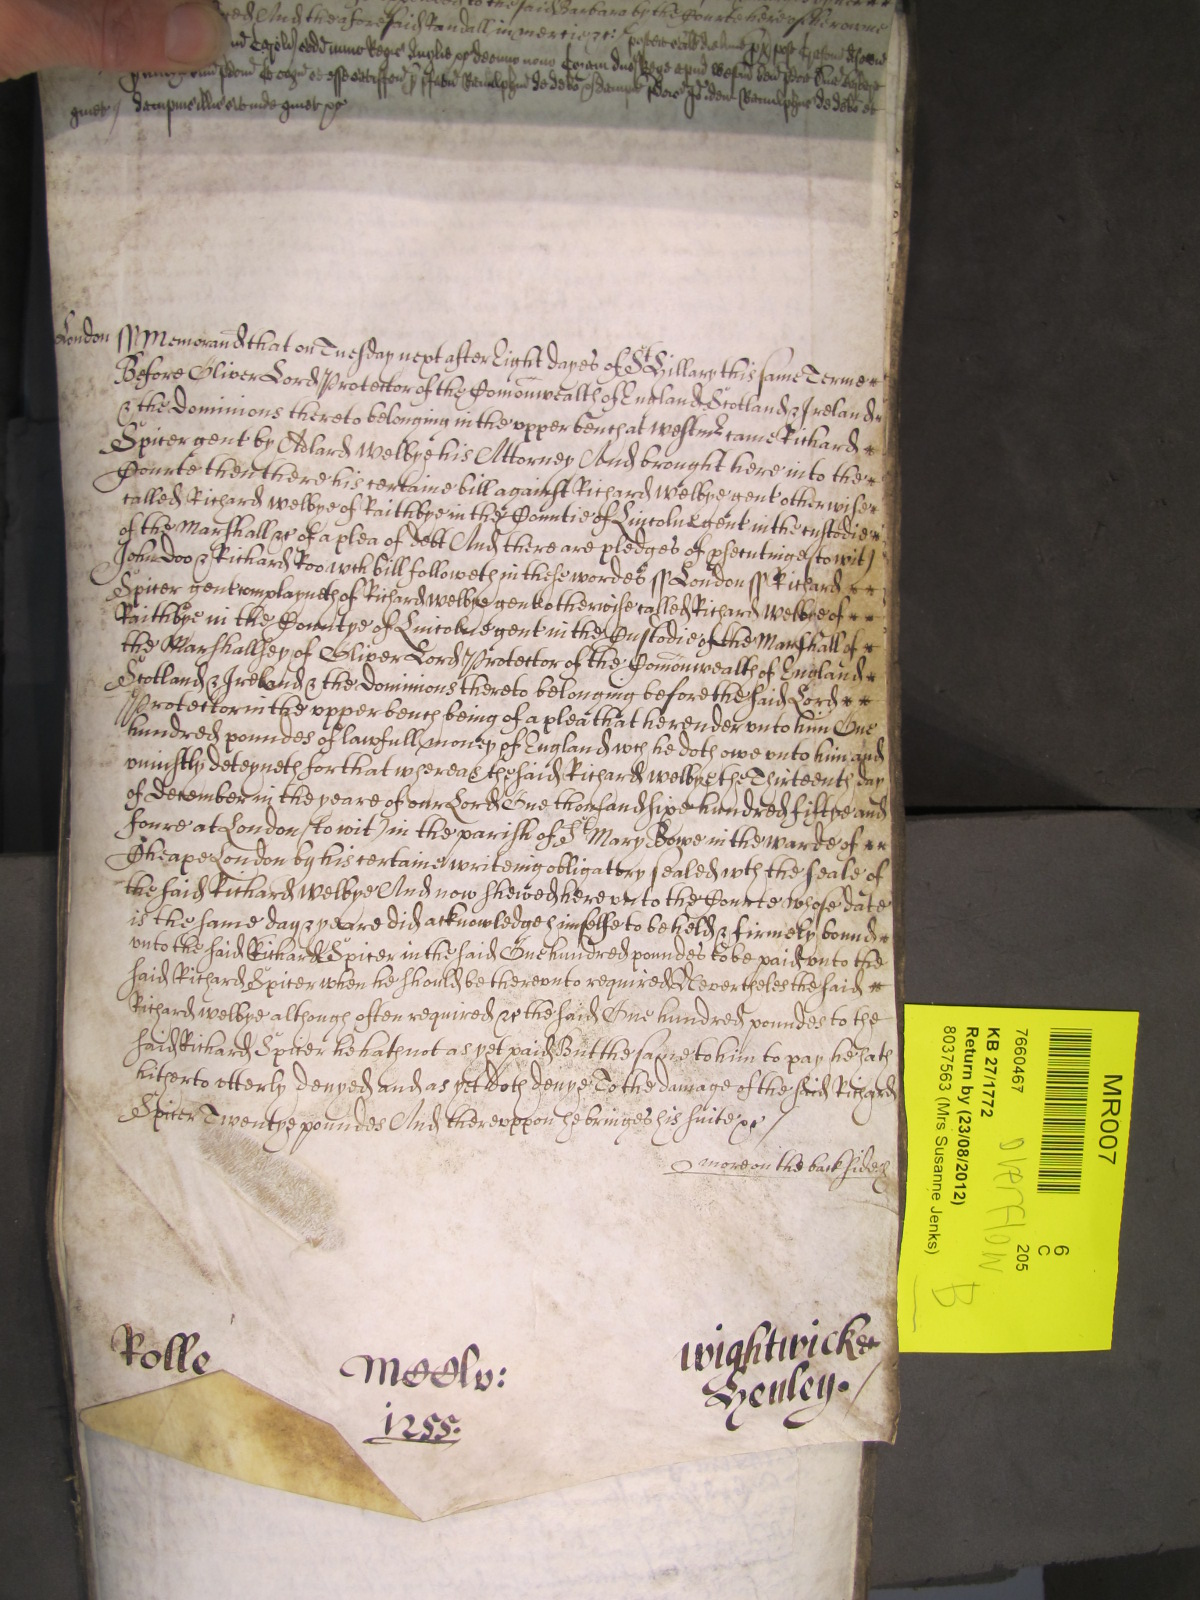 the said Barbara by the Courte here
And the aforesaid Randall in mercie &c:
London ss Memorand that on Tuesday next after Eight dayes of St Hillary this same Terme
Before Oliver Lord Protector of the Comonwealth of England Scotland & Ireland
& the Dominions thereto belonging in the upper bench at Westmr came Richard
Spicer gent by Adlard Welbye his Attorney And brought here into the
Courte then there his certaine bill against Richard Welbye gent otherwise
called Richard Welbye of Raithbye in the Countie of Lincolne gent in the custodie
of the Marshall &c of a plea of debt And there are pledges of psecutinge (to wit)
John Doo & Richard Roo wch bill followeth in these wordes ss London ss Richard
Spicer gent complayneth of Richard Welbye gent otherwise called Richard Welbye of
Raithbye in the Countye of Lincolne gent in the Custodie of the Marshall of
the Marshallsey of Oliver Lord Protector of the Comonwealth of England
Scotland & Ireland & the Dominions thereto belonging before the said Lord
Protector in the upper bench being of a plea that he render unto him One
hundred poundes of lawfull money of England wch he doth owe unto him and
uniustly deteyneth for that whereas the said Richard Welbye the Thirteenth day
of December in the yeare of our Lord One thousand sixe hundred fiftye and
foure at London (to wit) in the parish of St Mary Bowe in the warde of
Cheape London by his certaine writeing obligatory sealed wth the seale of
the said Richard Welbye And now shewed here unto the Courte whose date
is the same day & yeare did acknowledge himselfe to be held & firmely bound
unto the said Richard Spicer in the said One hundred poundes to be paid unto the
said Richard Spicer when he should be thereunto required Nevertheles the said
Richard Welbye although often required &c the said One hundred poundes to the
said Richard Spicer he hath not as yet paid But the same to him to pay he hath
hitherto utterly denyed and as yet doth denye To the damage of the said Richard
Spicer Twentye poundes And thereuppon he bringes his suite &c
more on the backside
Rolle
MCClv:
1255.
Wightwicke
Henley.
MR007
7660467
KB 27/1772
Return by (23/08/2012)
8037563 (Mrs Susanne Jenks)
6
C
205
overflow
B